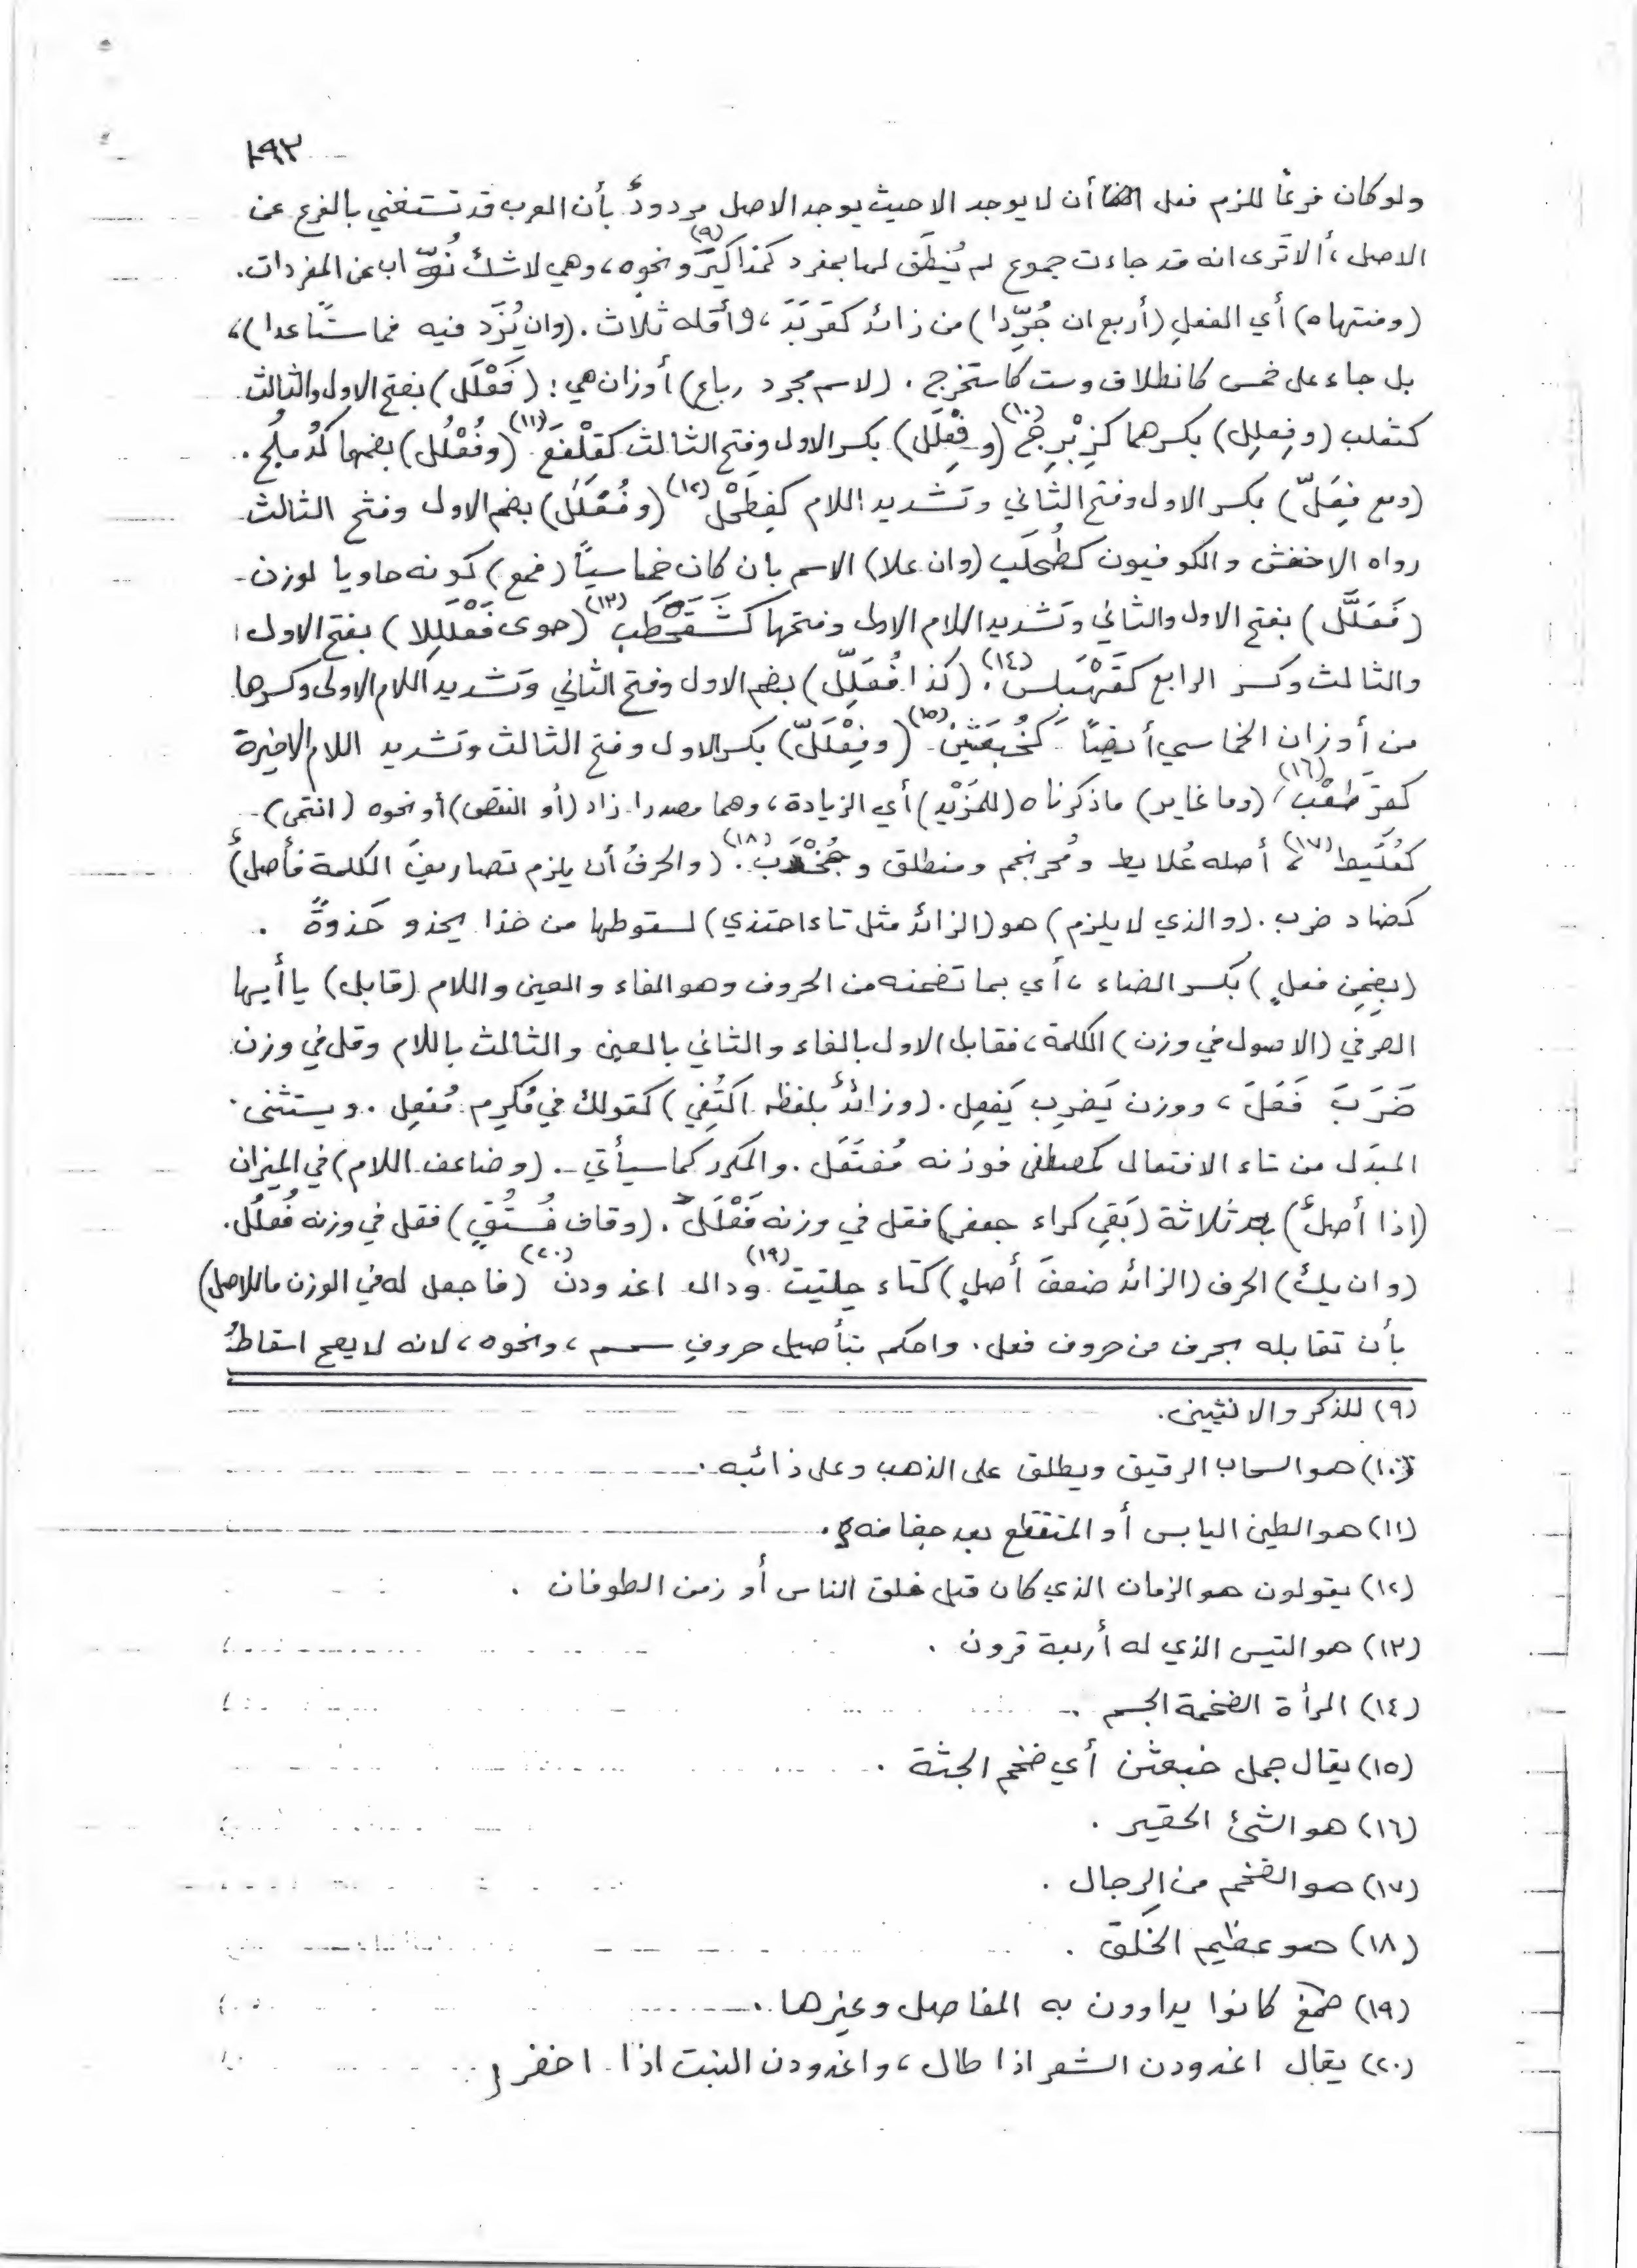 ١٩٣
ولو كان فرعًا للزم فعل أن لا يوجد الا حيث يوجد الاصل مردودٌ بأن العرب قد تستغني بالفرع عن
الاصل، ألا تَرى انه قد جاءت جموع لم يُنطَق لها بمفرد كمذاكيرَ (٩) ونحوه، وهي لا شك نُوّاب عن المفردات.
(ومنتهاه) أي الفعلِ (أربع ان جُرِّدا) من زائد كعَربَدَ، وأقله ثلاث. (وان يُزَد فيه فما ستًّا عدا)،
بل جاء على خمس كانطلاق وست كاستخرج. (لاسم مجرد رباع) أوزان هي: (فَعْلَل) بفتح الاول والثالث
كثعلب (وفِعلِل) بكسرهما كزِبْرِج (١٠) (وفِعْلَل) بكسر الاول وفتح الثالث كقِلْفَع (١١) (وفُعْلُل) بضمهما كدُملُج.
(ومع فِعَلّ) بكسر الاول وفتح الثاني وتشديد اللام كفِطَحْل (١٢) (وفُعْلَل) بضم الاول وفتح الثالث
رواه الاخفش والكوفيون كطُحلَب (وان علا) الاسم بان كان خماسيًّا (فمع) كونه حاويا لوزن
(فَعَلَّل) بفتح الاول والثاني وتشديد اللام الاولى وفتحها كشَقَحْطَب (١٣) (حوى فَعْلَلِلا) بفتح الاول
والثالث وكسر الرابع كقَهْبَلِس (١٤). (كذا فُعَلِّل) بضم الاول وفتح الثاني وتشديد اللام الاولى وكسرها
من أوزان الخماسي أيضًا كخُبَعثِن (١٥) (وفِعْلَلّ) بكسر الاول وفتح الثالث وتشديد اللام الاخيرة
كقرطَعْب (١٦) (وما غاير) ما ذكرناه (للمَزْيد) أي الزيادة، وهما مصدرا زاد (أو النقص) أو نحوه (انتمى)
كعُلَبط (١٧)، أصله عُلابط ومُحرنجم ومنطلق وجُخْدَب (١٨). (والحرفُ أن يلزم تصاريفَ الكلمة فأصلٌ)
كضاد ضرب. (والذي لا يلزم) هو (الزائد مثل تاء احتذي) لسقوطها من حذا يحذو حَذوةً.
(بضِمنِ فعلٍ) بكسر الضاء، أي بما تضمنه من الحروف وهو الفاء والعين واللام (قابل) يا أيها
الصرفي (الاصول في وزن) الكلمة، فقابل الاول بالفاء والثاني بالعين والثالث باللام وقل في وزن
ضَرَبَ فَعَلَ، ووزن يَضرِب يَفعِل. (وزائدٌ بلفظه اكتُفي) كقولك في مُكرِم مُفعِل. ويستثنى
المبدَل من تاء الافتعال كمصطفى فوزنه مُفتَعَل. والمكرر كما سيأتي. (وضاعف اللام) في الميزان
(اذا أصلٌ) بعد ثلاثة (بَقِي كراء جعفر) فقل في وزنه فَعْلَل. (وقاف فُستُقٍ) فقل في وزنه فُعلُل.
(وان يكُ) الحرف (الزائد ضعفَ أصلٍ) كتاء حِلتيت (١٩) ودال اغدودن (٢٠) (فاجعل له في الوزن ما للاصل)
بأن تقابله بحرف من حروف فعل. واحكم بتأصيل حروفِ سمسم، ونحوه، لانه لا يصح اسقاطُ
(٩) للذكر والانثيين.
(١٠) هو السحاب الرقيق ويطلق على الذهب وعلى ذائبه.
(١١) هو الطين اليابس أو المتقطع بعد جفافه.
(١٢) يقولون هو الزمان الذي كان قبل خلق الناس أو زمن الطوفان.
(١٣) هو التيس الذي له أربعة قرون.
(١٤) المرأة الضخمة الجسم.
(١٥) يقال جمل خبعثن أي ضخم الجثة.
(١٦) هو الشئ الحقير.
(١٧) هو الضخم من الرجال.
(١٨) هو عظيم الخَلق.
(١٩) صمغ كانوا يداوون به المفاصل وغيرها.
(٢٠) يقال اغدودن الشعر اذا طال، واغدودن النبت اذا اخضر